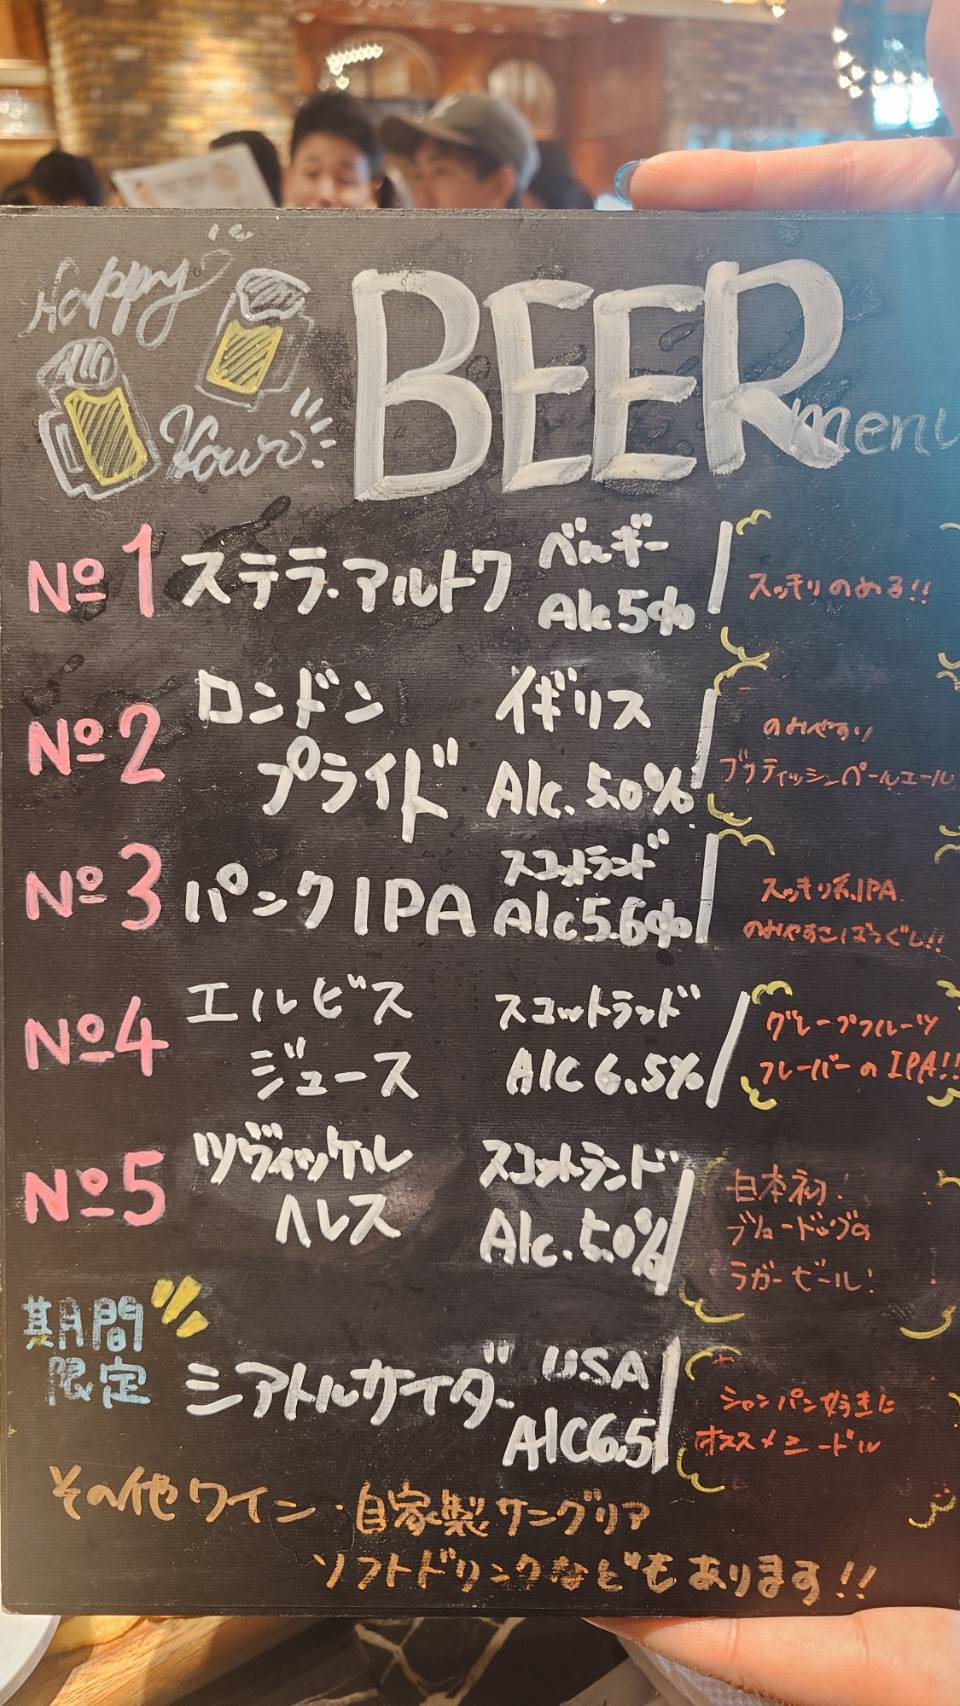 Happy
Hour
BEER
menu
No 1 ステラ・アルトワ ベルギー
Alc 5% スッキリのめる!!
No 2 ロンドン イギリス
プライド Alc. 5.0%
のみやすい
ブリティッシュペールエール
No 3 パンクIPA スコットランド
Alc 5.6%
スッキリ系IPA
のみやすさばつぐん!!
No 4 エルビス スコットランド
ジュース Alc 6.5%
グレープフルーツ
フレーバーのIPA!!
No 5 ツヴィッケル スコットランド
ヘレス Alc. 5.0%
日本初!
ブリュードッグの
ラガービール!
期間
限定
シアトルサイダー USA
Alc 6.5
シャンパン好きに
オススメ
その他ワイン・自家製サングリア
ソフトドリンクなどもあります!!